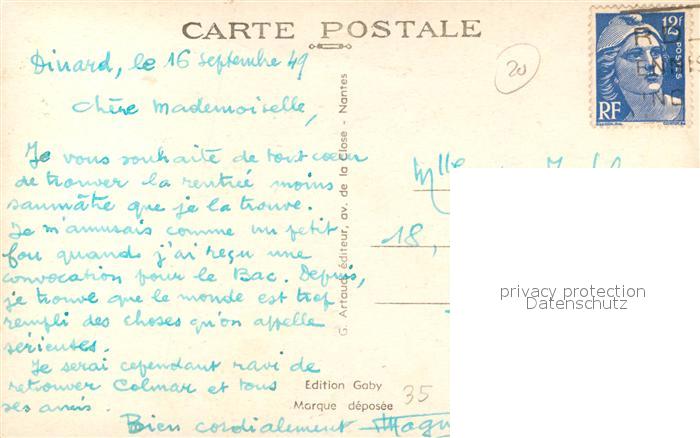 CARTE POSTALE
Dinard, le 16 septembre 49
20
12F
POSTES
RF
Chère Mademoiselle,
Je vous souhaite de tout cœur
de trouver la rentrée moins
saumâtre que je la trouve.
Je m'amusais comme un petit
fou quand j'ai reçu une
convocation pour le Bac. Depuis,
je trouve que le monde est trop
rempli des choses qu'on appelle
sérieuses.
Je serai cependant ravi de
retrouver Colmar et tous
ses amis.
Bien cordialement
G. Artaud, éditeur, av. de la Close - Nantes
Mlle
18,
privacy protection
Datenschutz
Edition Gaby
Marque déposée
35